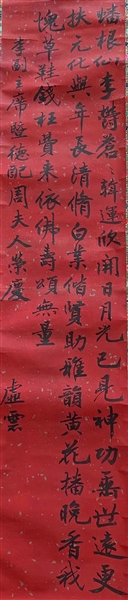 蟠根仙李鬱蒼蒼壽運欣開日月光已見神功垂世遠更
扶元化與年長清脩白業偕賢助雅韻黃花播晚香我
愧草鞋錢枉費來依佛壽頌無量
李副主席暨德配周夫人榮慶
虛雲